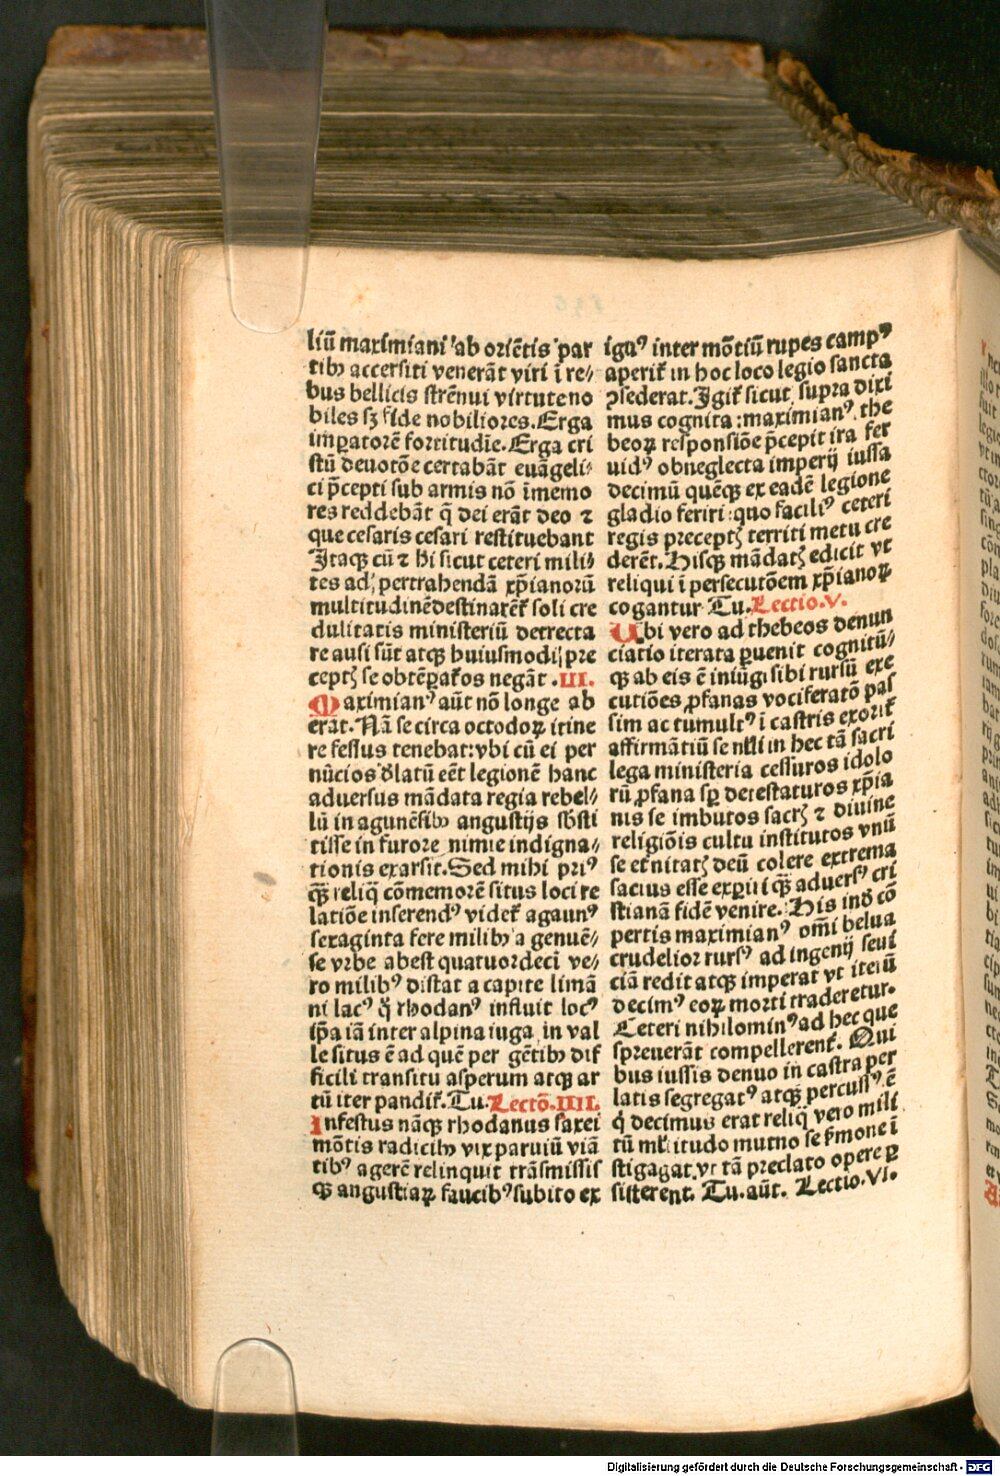 liū maximiani ab oriētis par
tibꝰ accersiti venerāt viri ī re⸗
bus bellicis strēnui virtute no
biles sꝫ fide nobiliores. Erga
imꝑatorē fortitudīe. Erga cri
stū deuotōe certabāt euāgeli⸗
ci p̄cepti sub armis nō īmemo
res reddebāt q̄ dei erāt deo ⁊
que cesaris cesari restituebant
Itaqꝫ cū ⁊ hi sicut ceteri mili⸗
tes ad pertrahendā xp̄ianorū
multitudinē destinarēt᷑ soli cre
dulitatis ministeriū detrecta
re ausi sūt atqꝫ huiusmodi pre
ceptꝭ se obtēꝑat᷑os negāt .III.
Maximianꝰ aūt nō longe ab
erat. Nā se circa octodoꝝ itine
re fessus tenebat: vbi cū ei per
nūcios delatū eēt legionē hanc
aduersus mādata regia rebel⸗
lū in agunēsibꝰ angustijs s̄bsti
tisse in furore nimie indigna⸗
tionis exarsit. Sed mihi priꝰ
qꝫ̄ reliq̄ cōmemorē situs loci re
latiōe inserendꝰ videt᷑ agaunꝰ
sexaginta fere milibꝰ a genuē⸗
se vrbe abest quatuordeci ve⸗
ro milibꝰ distat a capite limā
ni lacꝰ q̄ rhodanꝰ influit locꝰ
ip̄a iā inter alpina iuga in val
le situs ē ad quē per gētibꝰ dif
ficili transitu asperum atqꝫ ar
tū iter pandit᷑. Tu. Lectō. IIII.
Infestus nāqꝫ rhodanus saxei
mōtis radicibꝰ vix paruiū viā
tibꝰ agerē relinquit trāsmissis
qꝫ angustiaꝝ faucibꝰ subito ex
iguꝰ inter mōtiū rupes campꝰ
aperit᷑ in hoc loco legio sancta
ꝯsederat. Igit᷑ sicut supra dixi
mus cognita: maximianꝰ the
beoꝝ responsiōe p̄cepit ira fer
uidꝰ ob neglecta imperij iussa
decimū quēqꝫ ex eadē legione
gladio feriri: quo faciliꝰ ceteri
regis preceptꝭ territi metu cre
derēt. Hisqꝫ mādatꝭ edicit vt
reliqui ī persecutōem xp̄ianoꝝ
cogantur Tu. Lectio. V.
Ubi vero ad thebeos denun
ciatio iterata ꝑuenit cognitū⸗
qꝫ ab eis ē iniūgi sibi rursū exe
cutiōes ꝓfanas vociferatō pas
sim ac tumultꝰ ī castris exorit᷑
affirmātiū se nulli in hec tā sacri
lega ministeria cessuros idolo
rū ꝓfana sp̄ detestaturos xp̄ia
nis se imbutos sacrꝭ ⁊ diuine
religiōis cultu institutos vnū
se et᷑nitatꝭ deū colere extrema
sacius esse exꝑiri qꝫ̄ aduersꝰ cri
stianā fidē venire. His indꝰ cō
pertis maximianꝰ omī belua
crudelior rursꝰ ad ingenij seui
ciā redit atqꝫ imperat vt iterū
decimꝰ eoꝝ morti traderetur.
Ceteri nihilominꝰ ad hec que
spreuerāt compellerent᷑. Qui
bus iussis denuo in castra per
latis segregatꝰ atqꝫ percussꝰ ē
q̄ decimus erat reliq̄ vero mili
tū ml᷑titudo mutuo se s᷑mone ī
stigagat vt tā preclato opere ꝑ
sisterent. Tu. aūt. Lectio. VI.